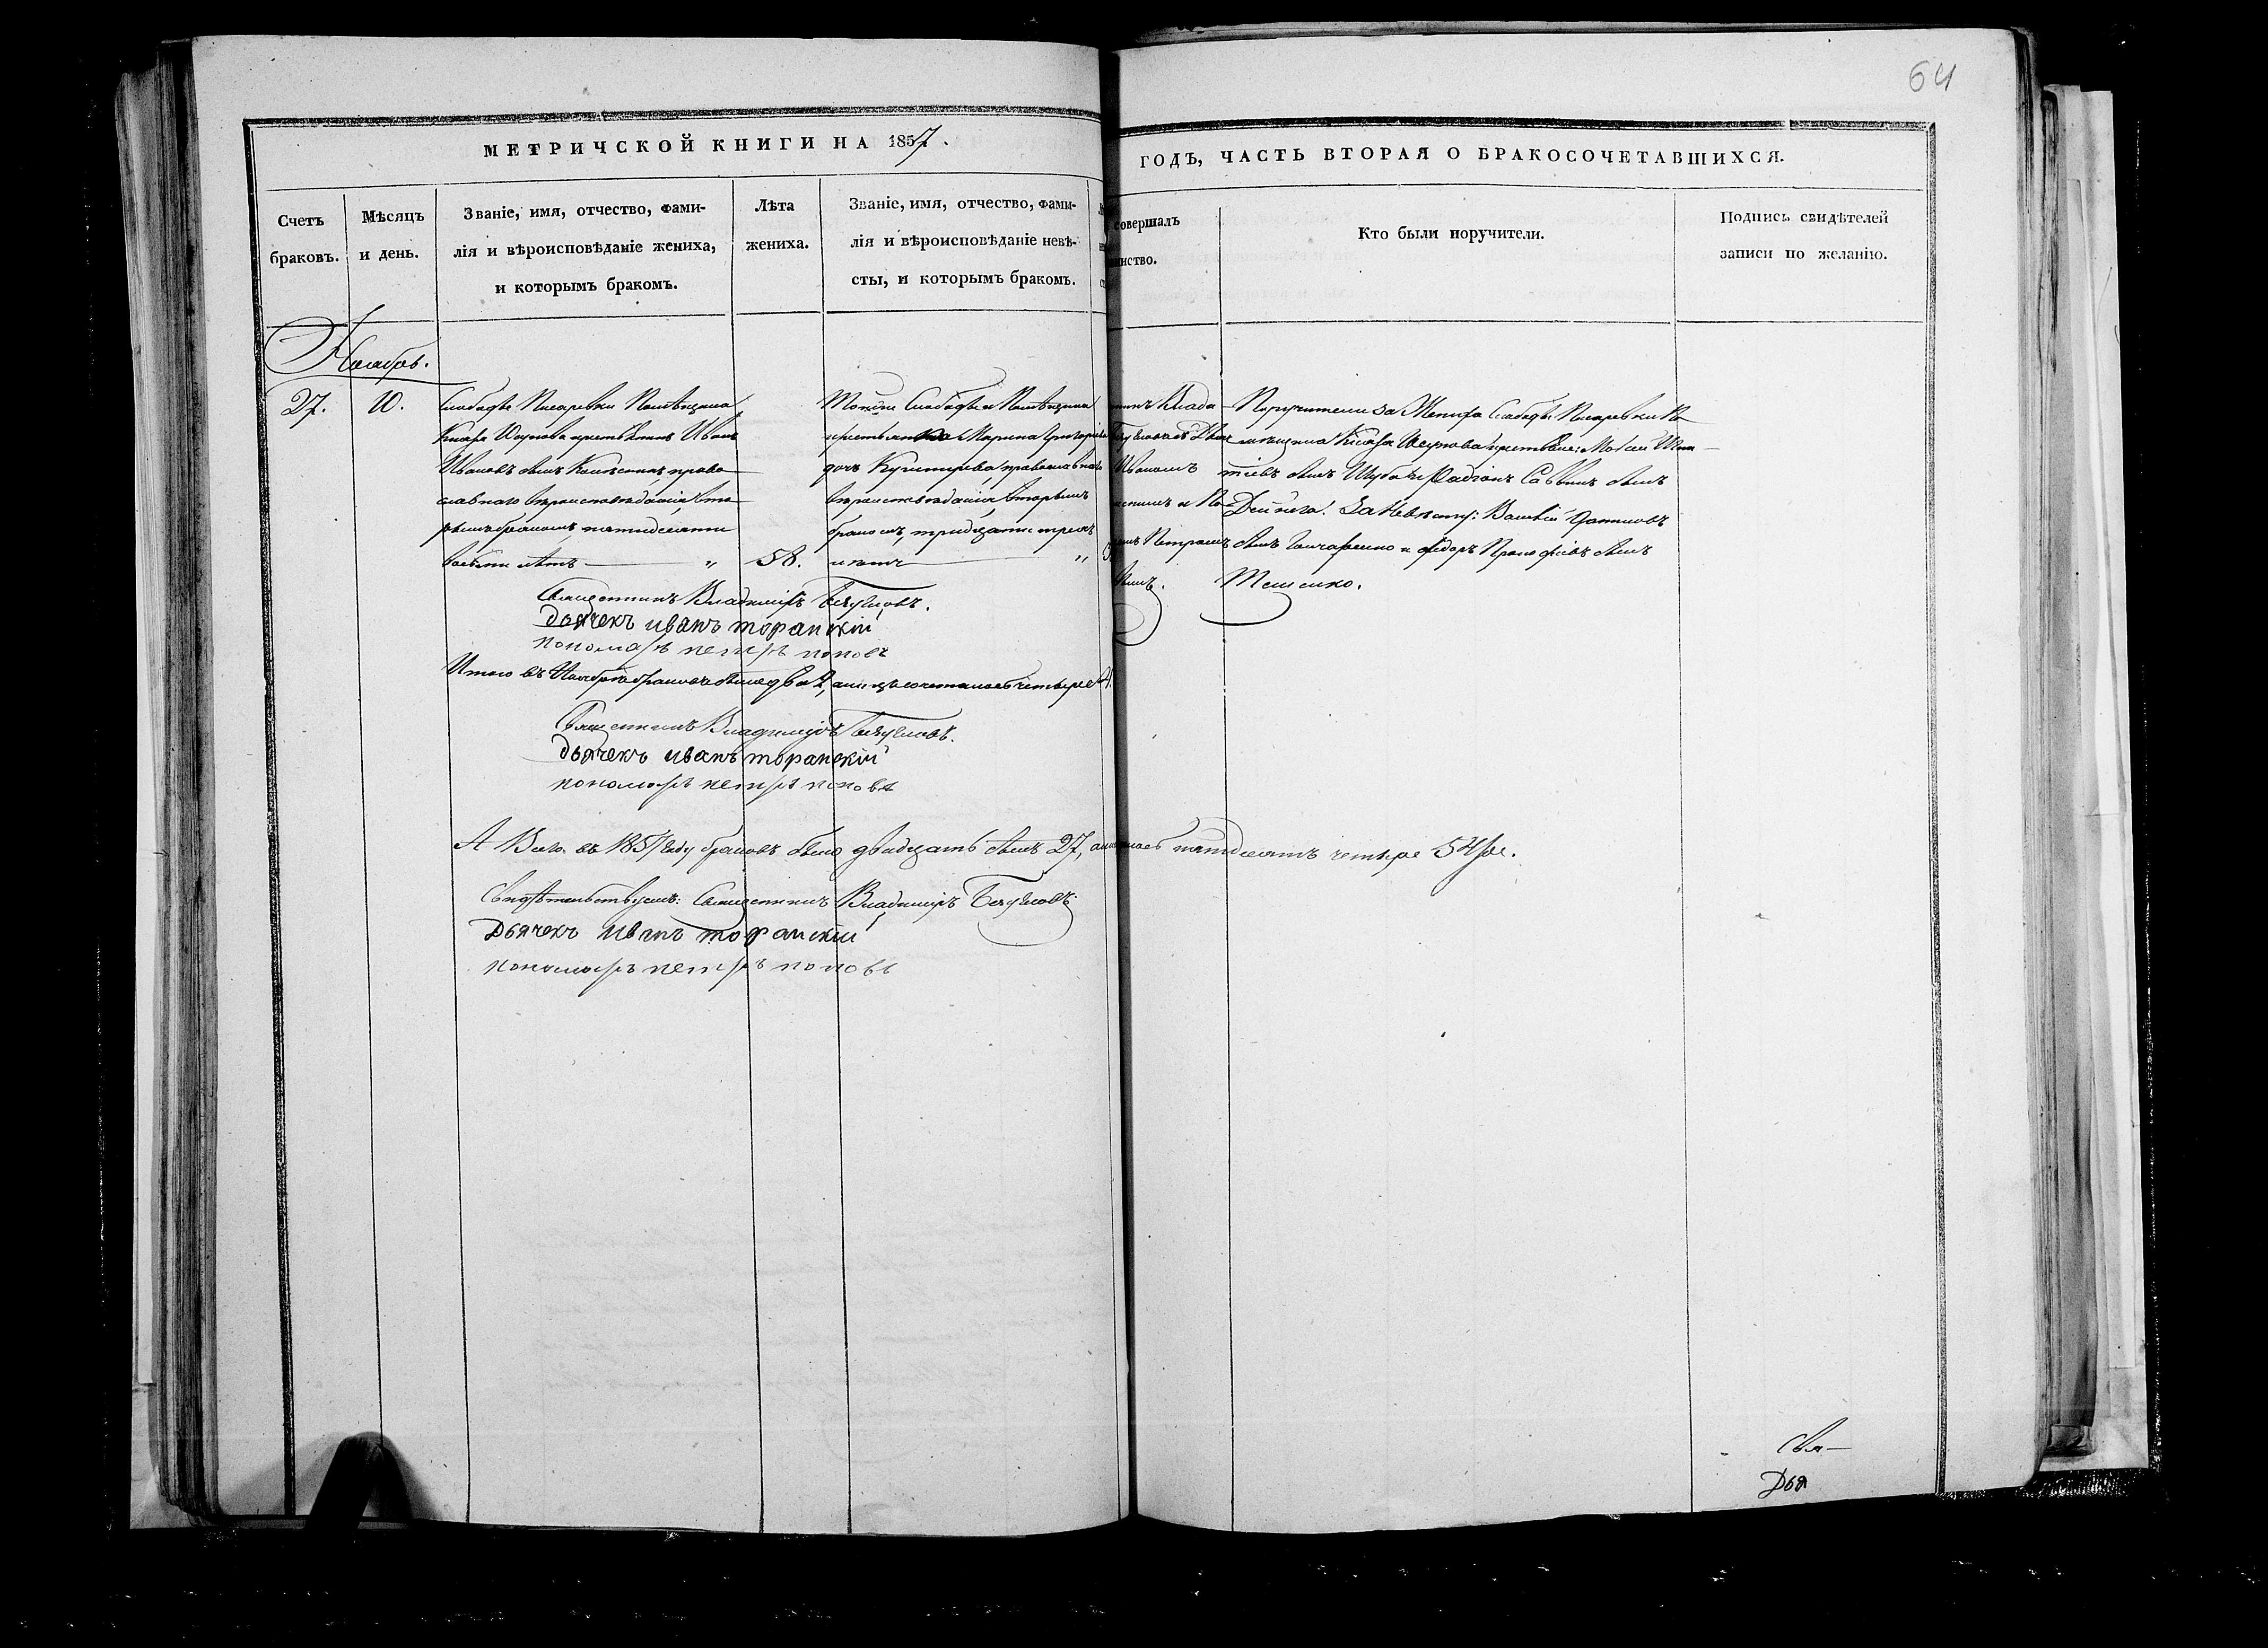 64
МЕТРИЧСКОЙ КНИГИ НА 1857.
ГОДЪ, ЧАСТЬ ВТОРАЯ О БРАКОСОЧЕТАВШИХСЯ.
Счетъ
браковъ.
Мѣсяцъ
и день.
Званіе, имя, отчество, фами-
лія и вѣроисповѣданіе жениха,
и которымъ бракомъ.
Лѣта
жениха.
Званіе, имя, отчество, фами-
лія и вѣроисповѣданіе невѣ-
сты, и которымъ бракомъ.
совершалъ
инство.
Кто были поручители.
Подпись свидѣтелей
записи по желанію.
Ноябрь.
27.
10.
Слободы Писаревки Помѣщика
Князя крестьянинъ Иванъ
Ивановъ сынъ право
славнаго вѣроисповѣданія, вто
рымъ бракомъ, пятидесяти
восьми лѣтъ "
58.
Тойже Слободы и Помѣщика
крестьянка Марина Григорьева
дочь православнаго
вѣроисповѣданія, вторымъ
бракомъ, тридцати трехъ
лѣтъ "
Влади
Иваномъ
и По
Петромъ
Поручители за Жениха Слободы Писаревки По
мѣщика Князя крестьяне: Моѵсей Игна
тіевъ сынъ и Радіонъ Саввинъ сынъ
Дейнега. За Невѣсту: Василій Даниловъ
сынъ Гончаренко и Ѳедоръ Прокофіевъ сынъ
Тещенко.
Священникъ Владиміръ
дьячекъ иванъ торанскій
пономарь петръ поповъ
Итого въ Ноябрѣ браковъ было два 2, а лицъ сочеталось четыре 4.
Священникъ Владиміръ
дьячекъ иванъ торанскій
пономарь петръ поповъ
А Всего въ 1857 году браковъ было двадцать семь 27, а лицъ пятьдесятъ четыре 54.
Свидѣтельствуемъ: Священникъ Владиміръ
Дьячекъ иванъ торанскій
пономарь петръ поповъ
Свя-
Дья